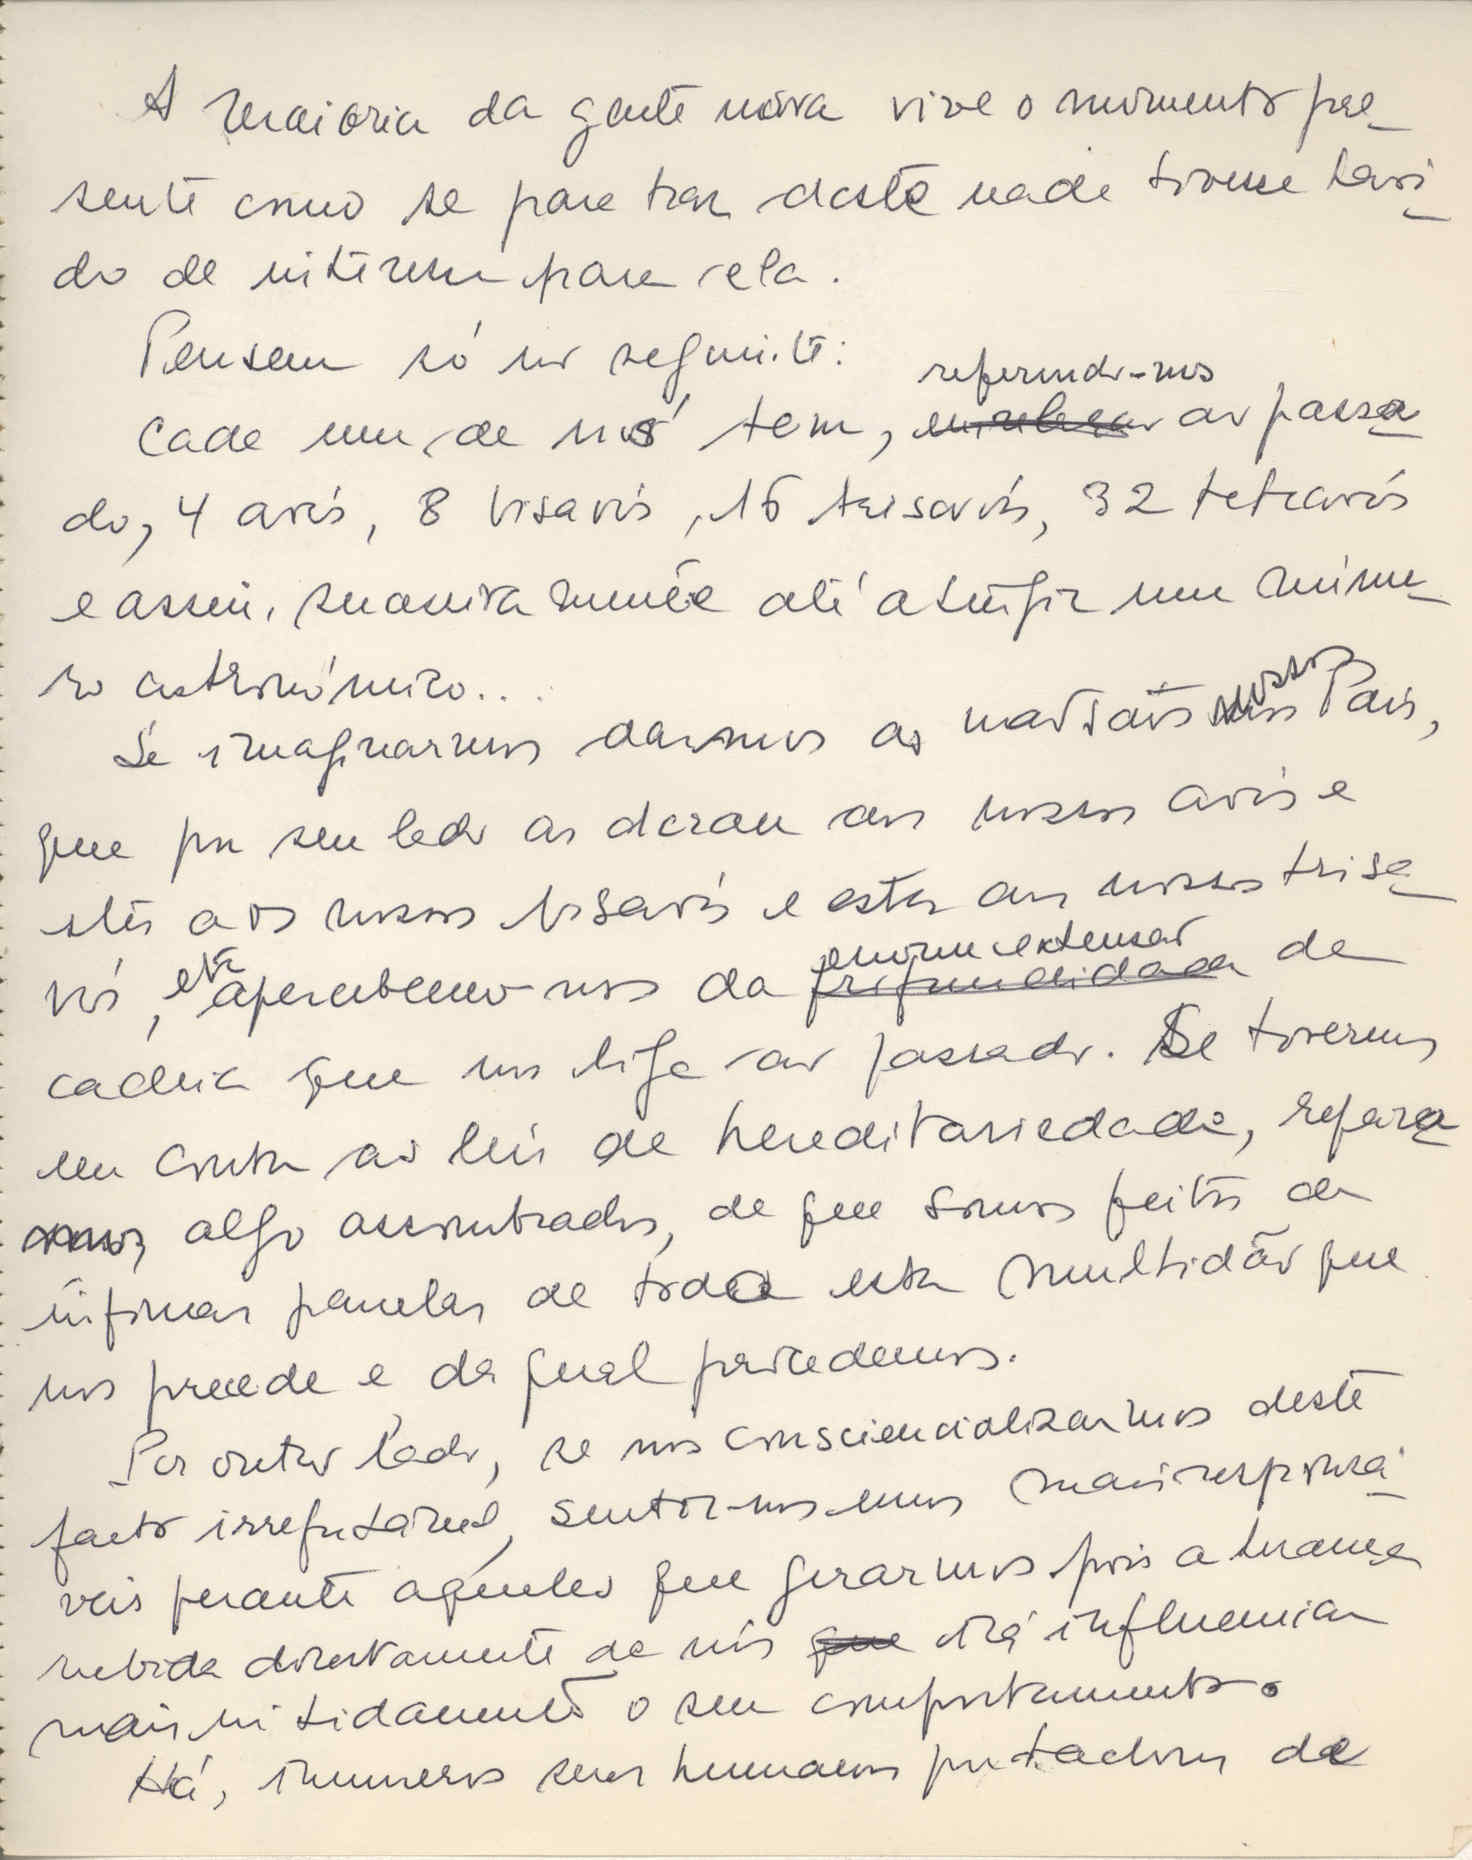 A maioria da gente nova vive o momento pre-
sente como se para traz deste nada tivesse havi-
do de interesse para ela.
Pensem só no seguinte:
referindo-nos
Cada um de nós tem, ao passa-
do, 4 avós, 8 bisavós, 16 trisavós, 32 tetravós
e assim, sucessivamente até atingir um núme-
ro astronómico...
Se imaginarmos darmos as mãos aos nossos Pais,
que por seu lado as deram aos nossos avós e
estes aos nossos bisavós e estes aos nossos trisa-
vós, etc apercebemo-nos da enorme extensão da
cadeia que nos liga ao passado. Se tivermos
em conta as leis de hereditariedade, repara-
mos, algo assombrados, de que somos feitos de
ínfimas parcelas de toda esta multidão que
nos precede e da qual procedemos.
Por outro lado, se nos consciencializarmos deste
facto irrefutável, sentir-nos-emos mais responsá-
veis perante aqueles que gerarmos pois a herança
recebida directamente de nós que irá influenciar
mais nitidamente o seu comportamento.
Há, inúmeros seres humanos portadores de